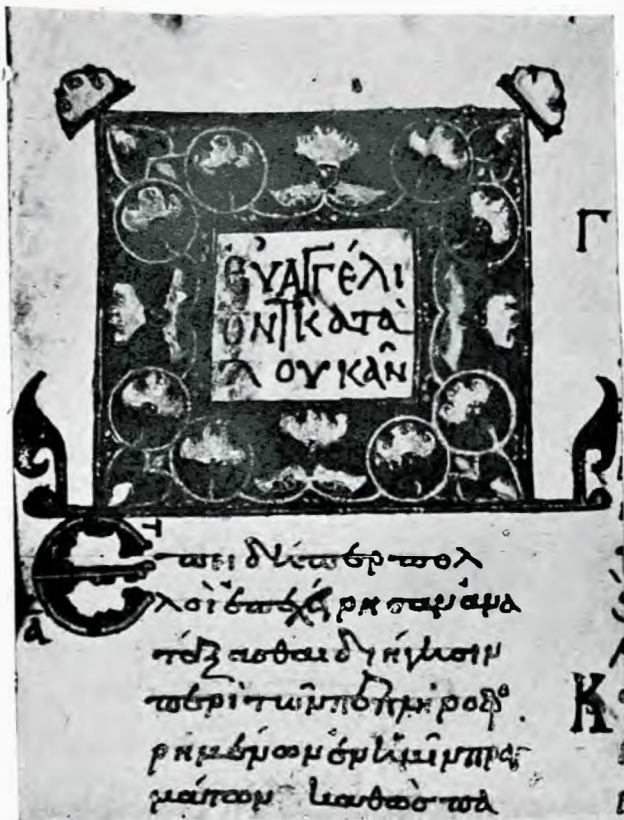 εὐαγγέλι
ον κατὰ
λουκᾶν
Γ
Ἐπειδήπερ πολ
λοὶ ἐπεχείρησαν ἀνα
α
τάξασθαι διήγησιν
περὶ τῶν πεπληροφο
Κ
ρημένων ἐν ἡμῖν πραγ
μάτων καθὼς πα